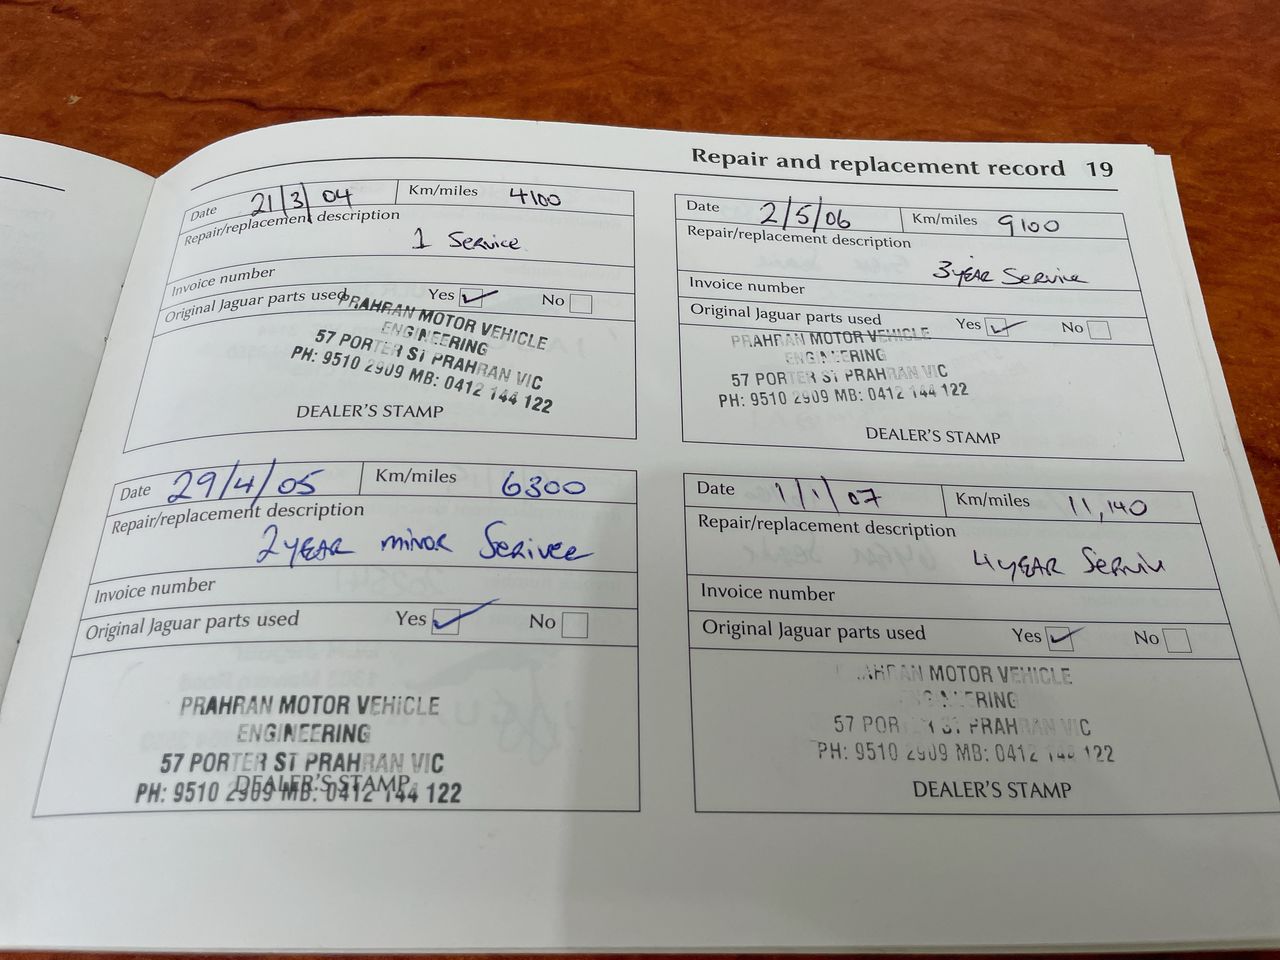 Repair and replacement record 19
Date 21/3/04 Km/miles 4100
Repair/replacement description
1 Service
Invoice number
Original Jaguar parts used Yes No
PRAHRAN MOTOR VEHICLE
ENGINEERING
57 PORTER ST PRAHRAN VIC
PH: 9510 2909 MB: 0412 144 122
DEALER'S STAMP
Date 29/4/05 Km/miles 6300
Repair/replacement description
2 YEAR minor Serivee
Invoice number
Original Jaguar parts used Yes No
PRAHRAN MOTOR VEHICLE
ENGINEERING
57 PORTER ST PRAHRAN VIC
DEALER'S STAMP
PH: 9510 2909 MB: 0412 144 122
Date 2/5/06 Km/miles 9100
Repair/replacement description
3 YEAR Service
Invoice number
Original Jaguar parts used Yes No
PRAHRAN MOTOR VEHICLE
ENGINEERING
57 PORTER ST PRAHRAN VIC
PH: 9510 2909 MB: 0412 144 122
DEALER'S STAMP
Date 1/1/07 Km/miles 11,140
Repair/replacement description
4 YEAR Service
Invoice number
Original Jaguar parts used Yes No
PRAHRAN MOTOR VEHICLE
ENGINEERING
57 PORTER ST PRAHRAN VIC
PH: 9510 2909 MB: 0412 144 122
DEALER'S STAMP